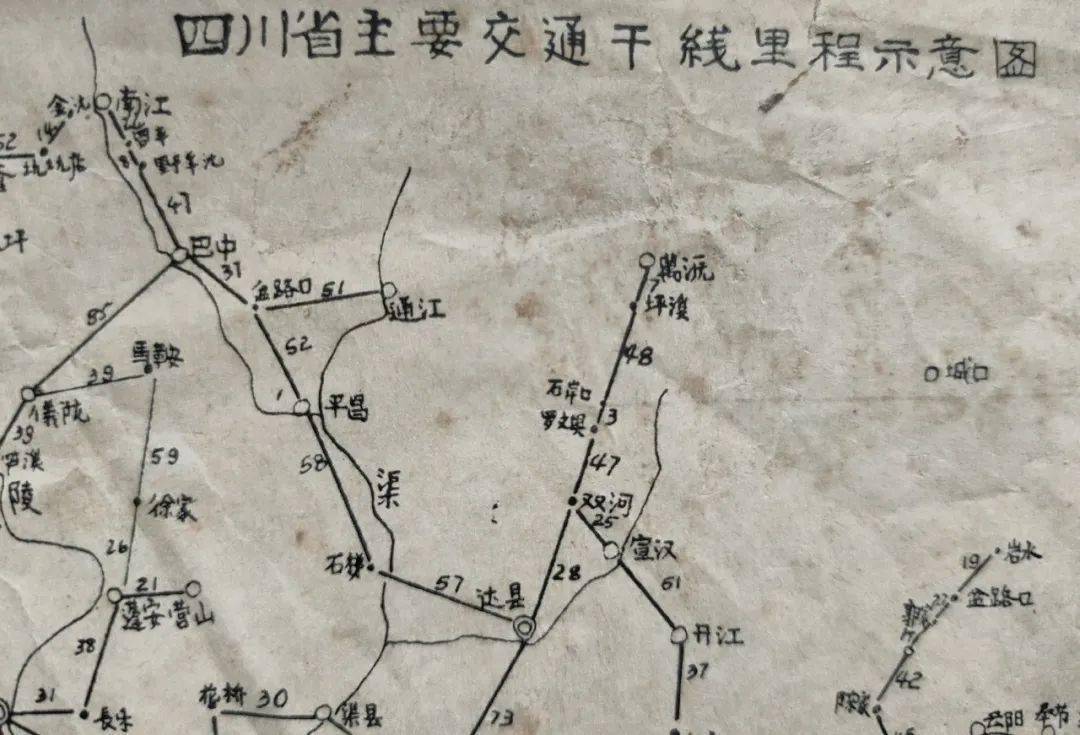 四川省主要交通干線里程示意图
南江
14
52
野羊沱
47
坪
巴中
37
岔路口
51
通江
萬沅
7
坪溪
85
52
48
馬鞍安
39
城口
儀陇
石岸口
罗文坝
3
平昌
39
58
59
47
渠
陵
徐家
双河
25
宣汉
26
石梯
57
28
达县
61
19
岩水
岔路口
21
蓬安
营山
38
开江
37
42
31
長乐
30
渠县
73
云阳
奉节